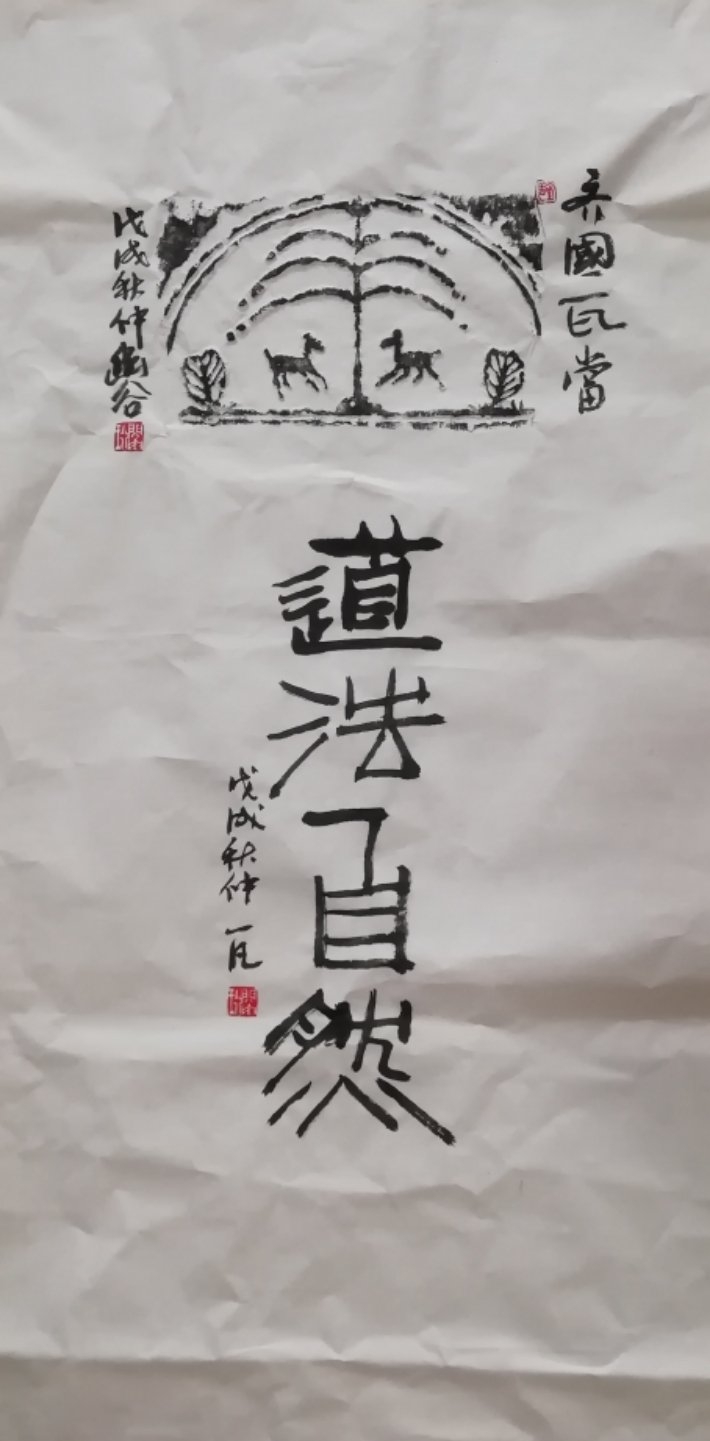 齐國瓦當
戊戌秋仲幽谷
道法自然
戊戌秋仲一瓦